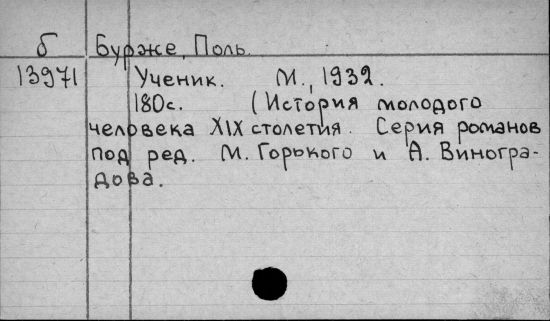 б Бурже, Поль.
13971 Ученик. М., 1932.
180с. (История молодого
человека XIX столетия. Серия романов
под ред. М. Горького и А. Виногра-
дова.